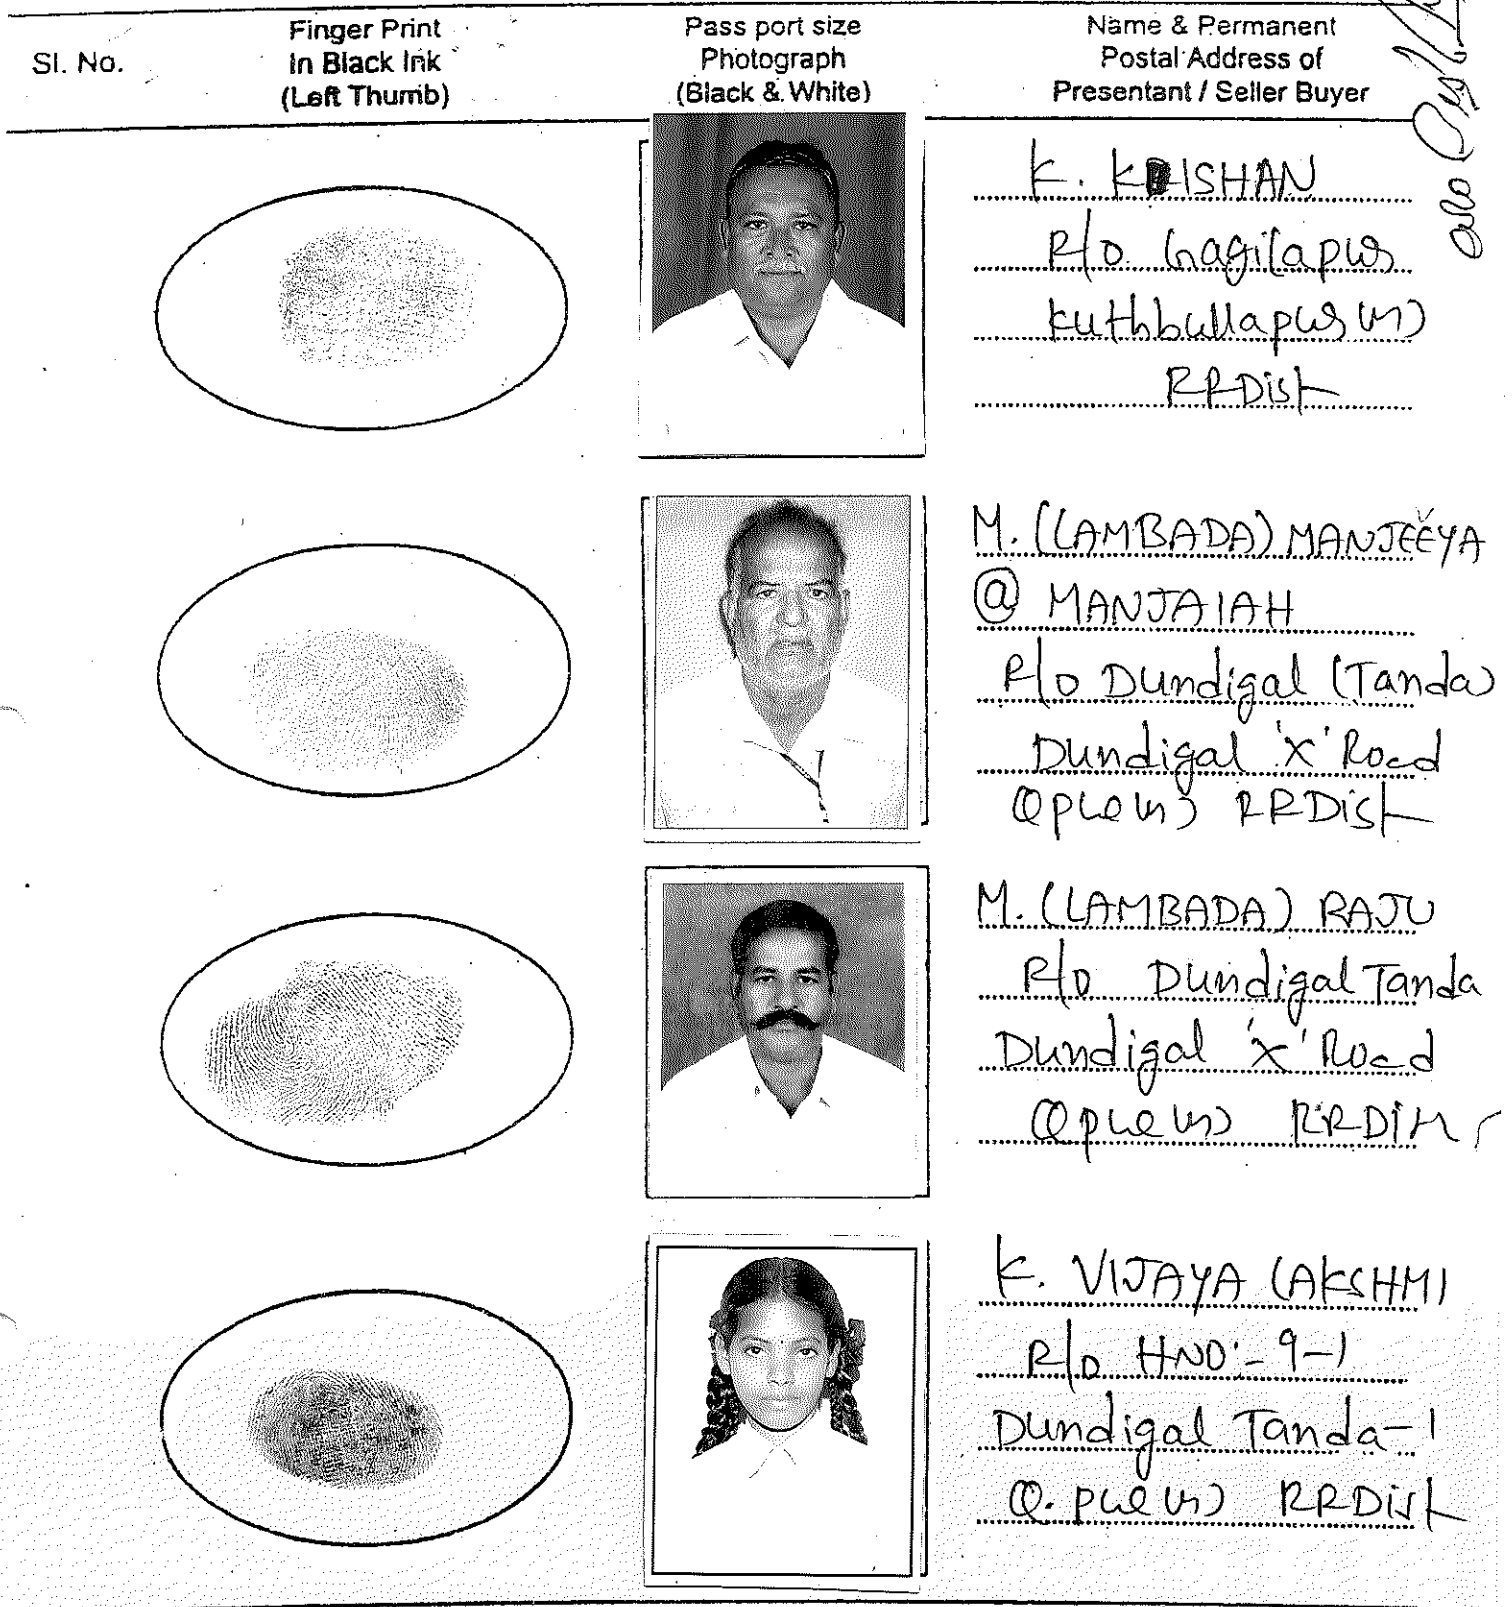 Sl. No.
Finger Print
In Black Ink
(Left Thumb)
Pass port size
Photograph
(Black & White)
Name & Permanent
Postal Address of
Presentant / Seller Buyer
K. KRISHAN
R/o Gagilapur
Kuthbullapur (M)
RRDist
M. (LAMBADA) MANJEEYA
@ MANJAIAH
R/o Dundigal (Tanda)
Dundigal 'X' Road
(M) RRDist
M. (LAMBADA) RAJU
R/o Dundigal Tanda
Dundigal 'X' Road
(M) RRDist
K. VIJAYA LAKSHMI
R/o HNO:- 9-1
Dundigal Tanda-1
(M) RRDist